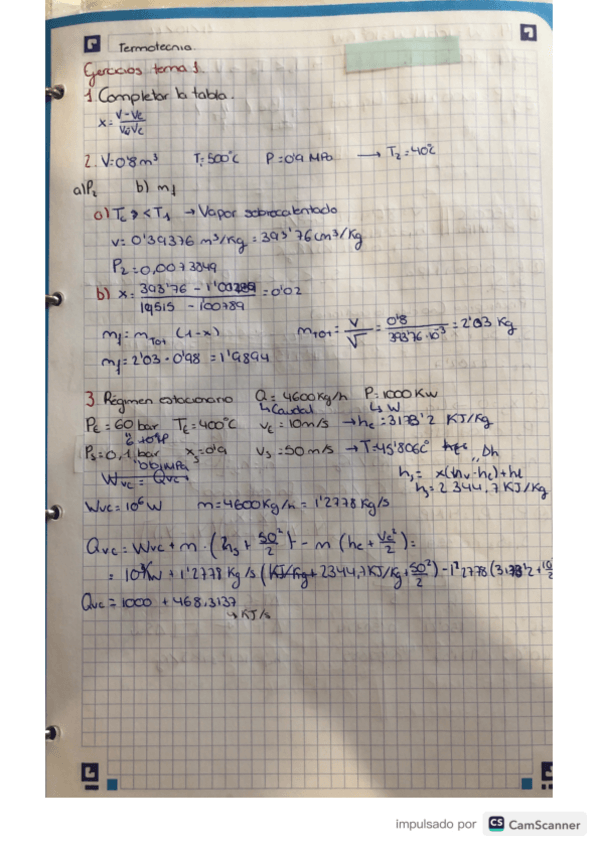 Termotecnia.
Ejercicios tema 1.
1. Completar la tabla.
x = (V - Ve) / (Vv Ve)
2. V: 0'8 m³ T: 500°C P = 0'9 MPa → T2 = 40°C
a) P2 b) mf
a) T < T1 → Vapor sobrecalentado
v = 0'39376 m³/kg = 393'76 cm³/kg
P2 = 0,0073849
b) x = (393'76 - 1'00789) / (19515 - 1'00789) = 0'02
mf = mTOT (1-x) mTOT = V / v = 0'8 / 393'76·10⁻³ = 2'03 Kg
mf = 2'03 · 0'98 = 1'9894
3. Régimen estacionario Q = 4600 Kg/h P = 1000 KW
↳ Caudal ↳ W
Pe = 60 bar Te = 400°C ve = 10 m/s → he = 3178'2 KJ/Kg
Ps = 0,1 bar xs = 0'9 vs = 50 m/s → T = 45'806°C Dh
Wvc = Qvc hs = x(hv - he) + he
hs = 2344,7 KJ/Kg
Wvc = 10⁶ W m = 4600 Kg/h = 1'2778 Kg/s
Qvc = Wvc + m · (hs + 50²/2) - m (he + Ve²/2) =
= 10³ KW + 1'2778 Kg/s (KJ/Kg + 2344,7 KJ/Kg + 50²/2) - 1'2778 (3178'2 + 10
Qvc = 1000 + 468,3137
→ KJ/s
impulsado por CS CamScanner